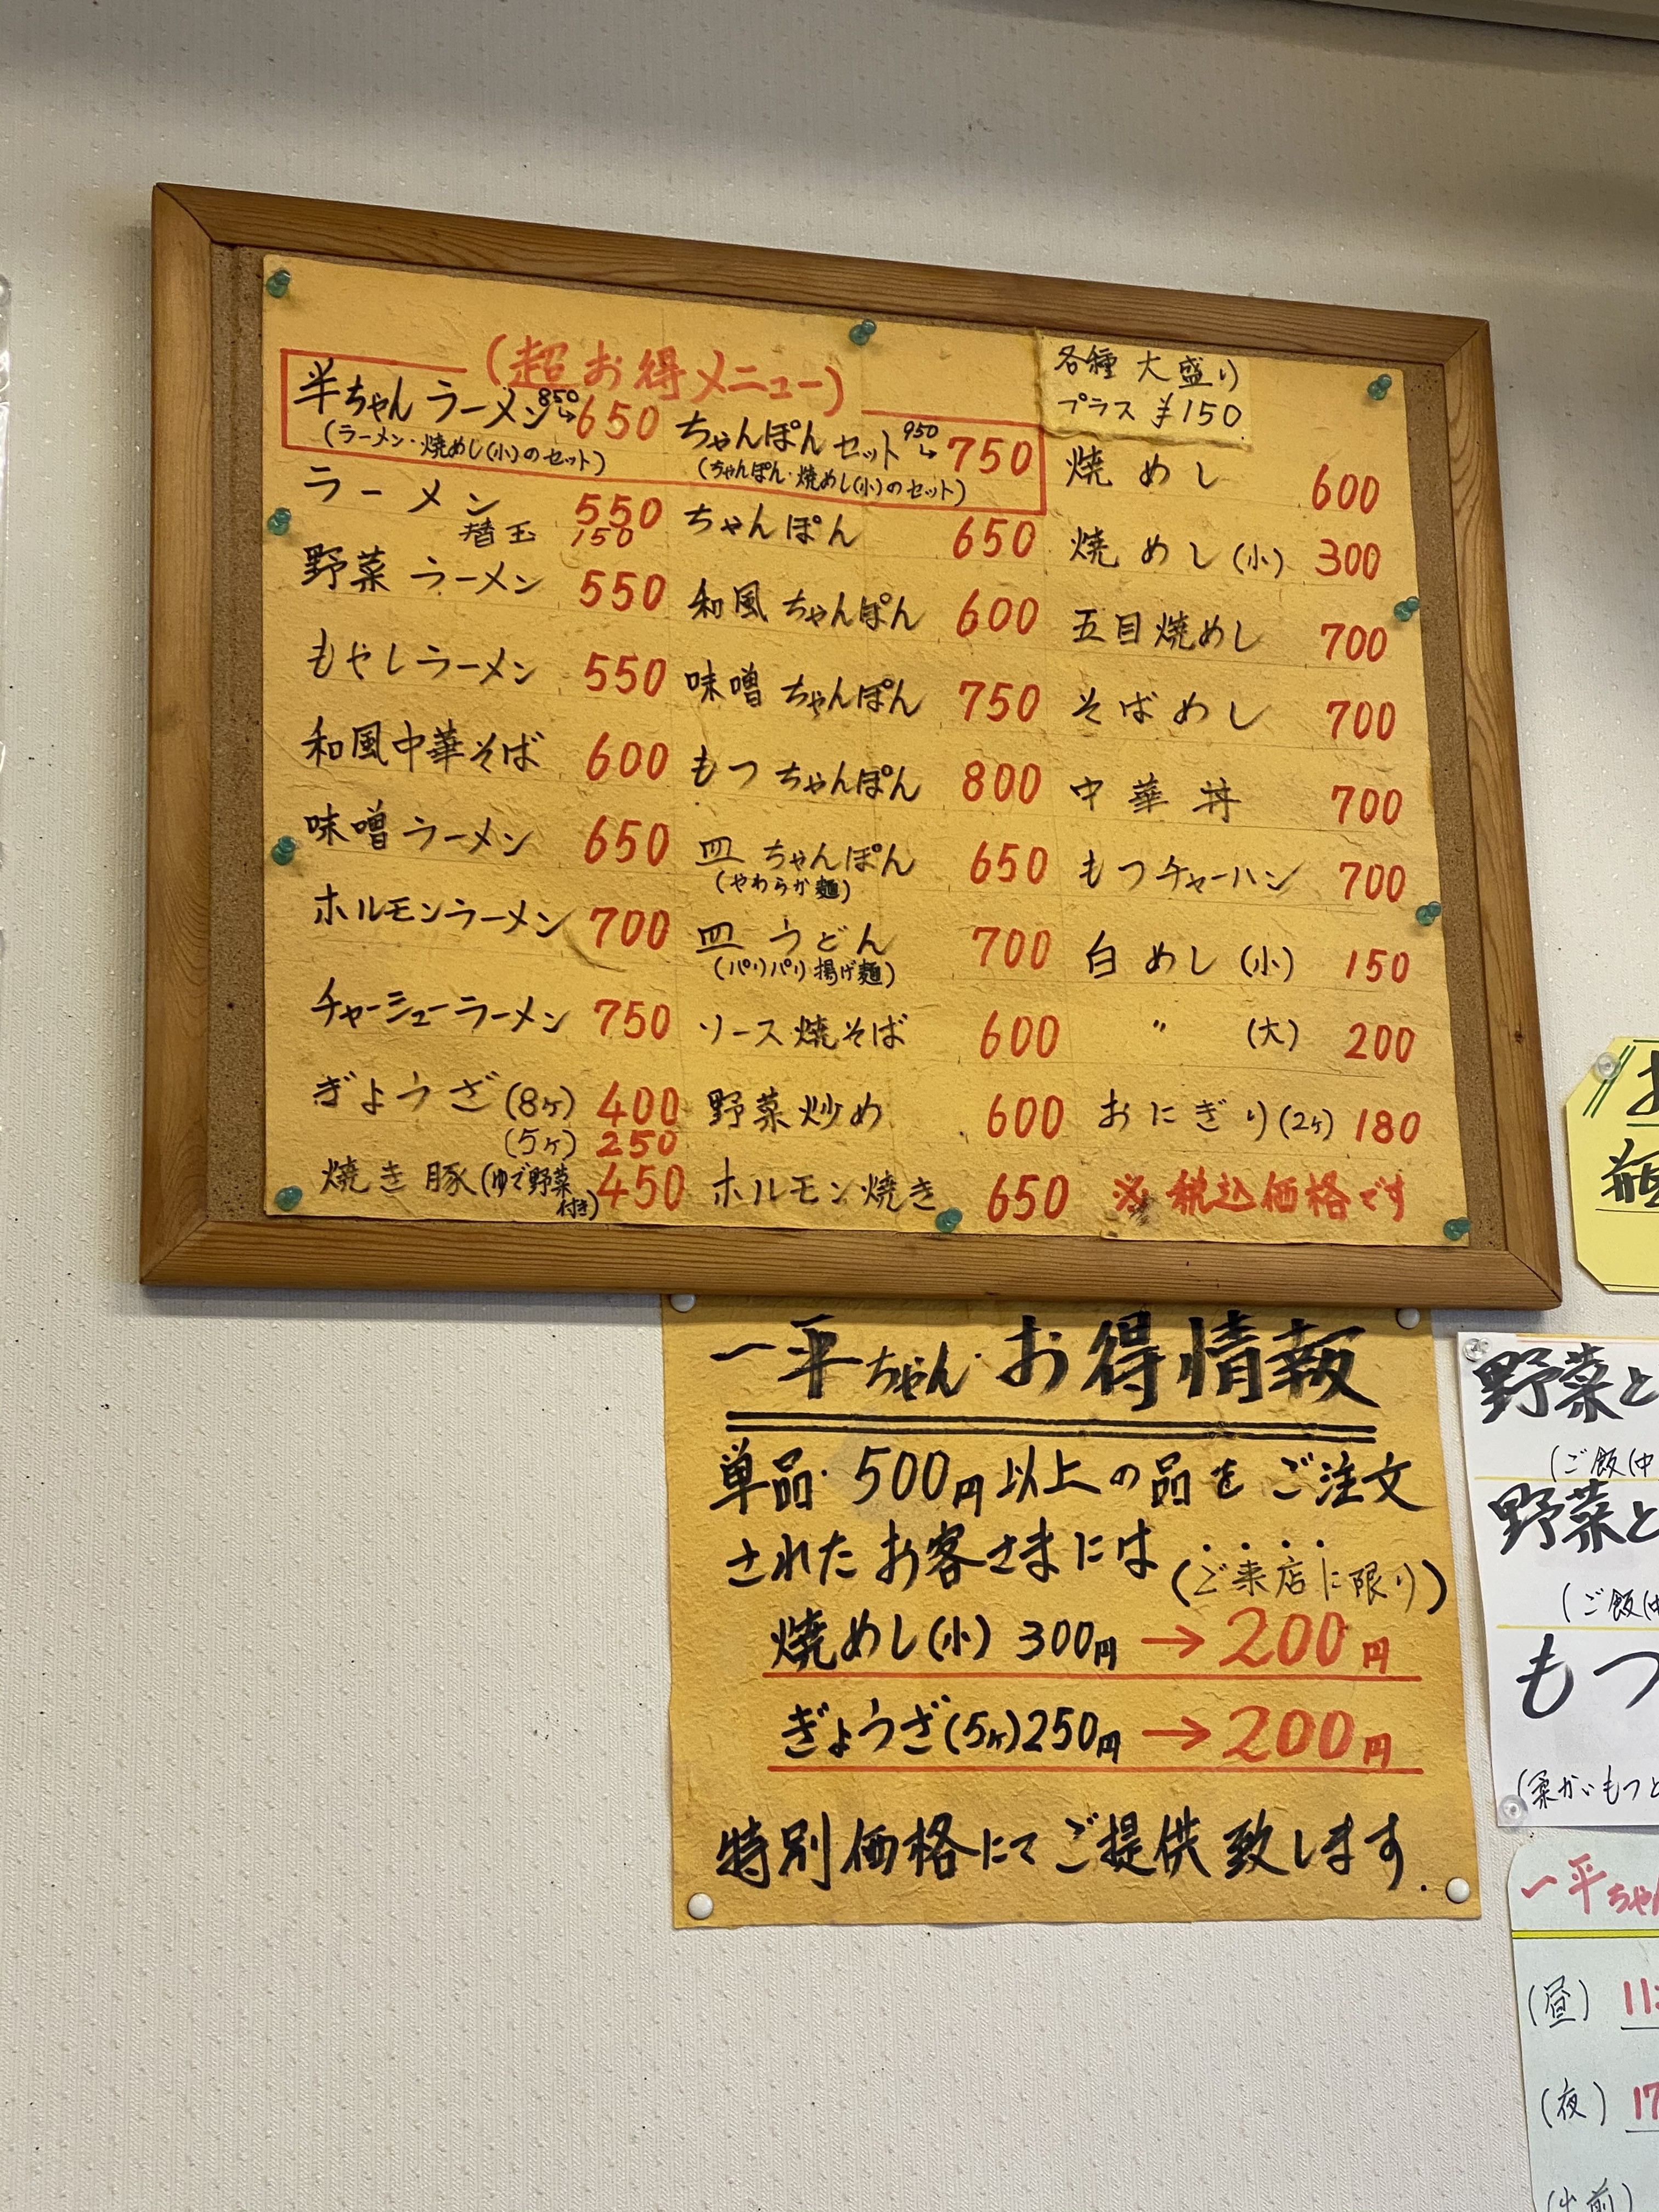 (超お得メニュー)
半ちゃんラーメン 850→650
(ラーメン・焼めし(小)のセット)
ラーメン 550
替玉 150
野菜ラーメン 550
もやしラーメン 550
和風中華そば 600
味噌ラーメン 650
ホルモンラーメン 700
チャーシューラーメン 750
ぎょうざ(8ヶ) 400
(5ヶ) 250
焼き豚(ゆで野菜付き) 450
ちゃんぽんセット 950→750
(ちゃんぽん・焼めし(小)のセット)
ちゃんぽん 650
和風ちゃんぽん 600
味噌ちゃんぽん 750
もつちゃんぽん 800
皿ちゃんぽん 650
(やわらか麺)
皿うどん 700
(パリパリ揚げ麺)
ソース焼そば 600
野菜炒め 600
ホルモン焼き 650
各種 大盛り
プラス ¥150
焼めし 600
焼めし(小) 300
五目焼めし 700
そばめし 700
中華丼 700
もつチャーハン 700
白めし(小) 150
〃 (大) 200
おにぎり(2ヶ) 180
※税込価格です
一平ちゃん お得情報
単品 500円以上の品をご注文
されたお客さまには(ご来店に限り)
焼めし(小) 300円→200円
ぎょうざ(5ヶ)250円→200円
特別価格にてご提供致します.
野菜と
(ご飯(中
野菜と
(ご飯(中
もつ
(柔かいもつと
一平ちゃん
(昼) 11:
(夜) 17